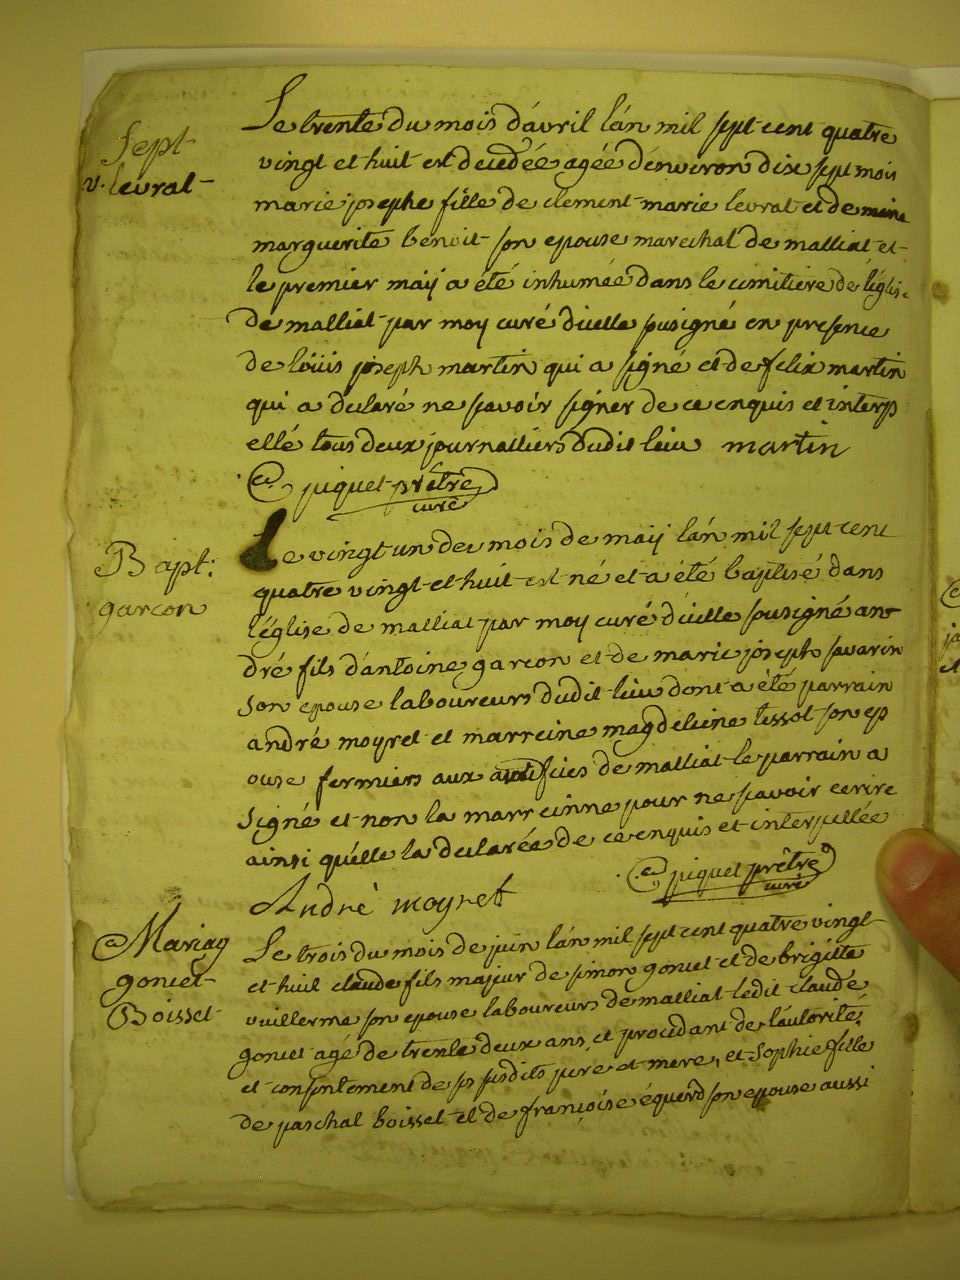 Sept
v. levral
Le trente du mois d'avril l'an mil sept cent quatre
vingt et huit est decedée agée d'environ dix sept mois
marie josephe fille de clement marie levrat et de
marguerite benoit son epouse marechal de malliat et
le premier maij a été inhumée dans le cimitiere de l'églis
de malliat par moy curé d'icelle sousigné en presence
de loüis joseph martin qui a signé et de felix martin
qui a declaré ne savoir signer de ce enquis et interp
ellé tous deux journalliers dudit lieu martin
piquet prêtre
curé
Bapt:
garcon
Le vingt un des mois de maij l'an mil sept cent
quatre vingt et huit est né et a été baptisé dans
l'église de malliat par moy curé d'icelle sousigné an
dré fils d'antoine garcon et de marie joseph savarin
son epouse laboureurs dudit lieu dont a été parrain
andré moyret et marreine magdeleine tissot son ep
ouse fermiers aux de malliat le parrain a
signé et non la marreinne pour ne savoir ecrire
ainsi qu'elle la declarée de ce enquis et interpellée
piquet prêtre
curé
Andrè moyret
Mariag
gonet
Boisset
Le trois du mois de juin l'an mil sept cent quatre vingt
et huit claude fils majeur de simon gonet et de brigitte
vuillerme son epouse laboureurs de malliat ledit claude
gonet agé de trente deux ans, et procedant de l'autorité
et consentement de ss susdits pere et mere, et Sophie fille
de paschal boisset et de françoise son epouse aussi